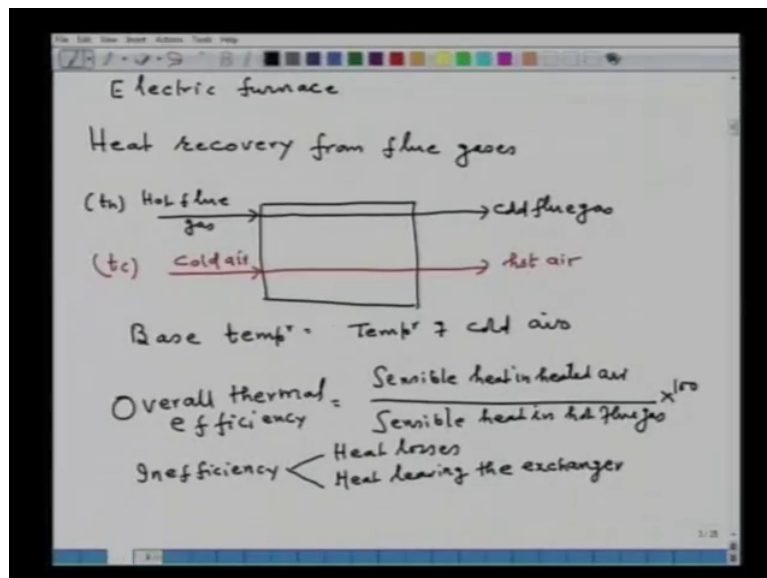 File Edit View Insert Actions Tools Help
Electric furnace
Heat recovery from flue gases
(tn) Hot flue gas → cold flue gas
(tc) cold air → hot air
Base tempr = Tempr of cold air
Overall thermal efficiency = Sensible heat in heated air / Sensible heat in hot flue gas × 100
Inefficiency < Heat losses
Heat leaving the exchanger